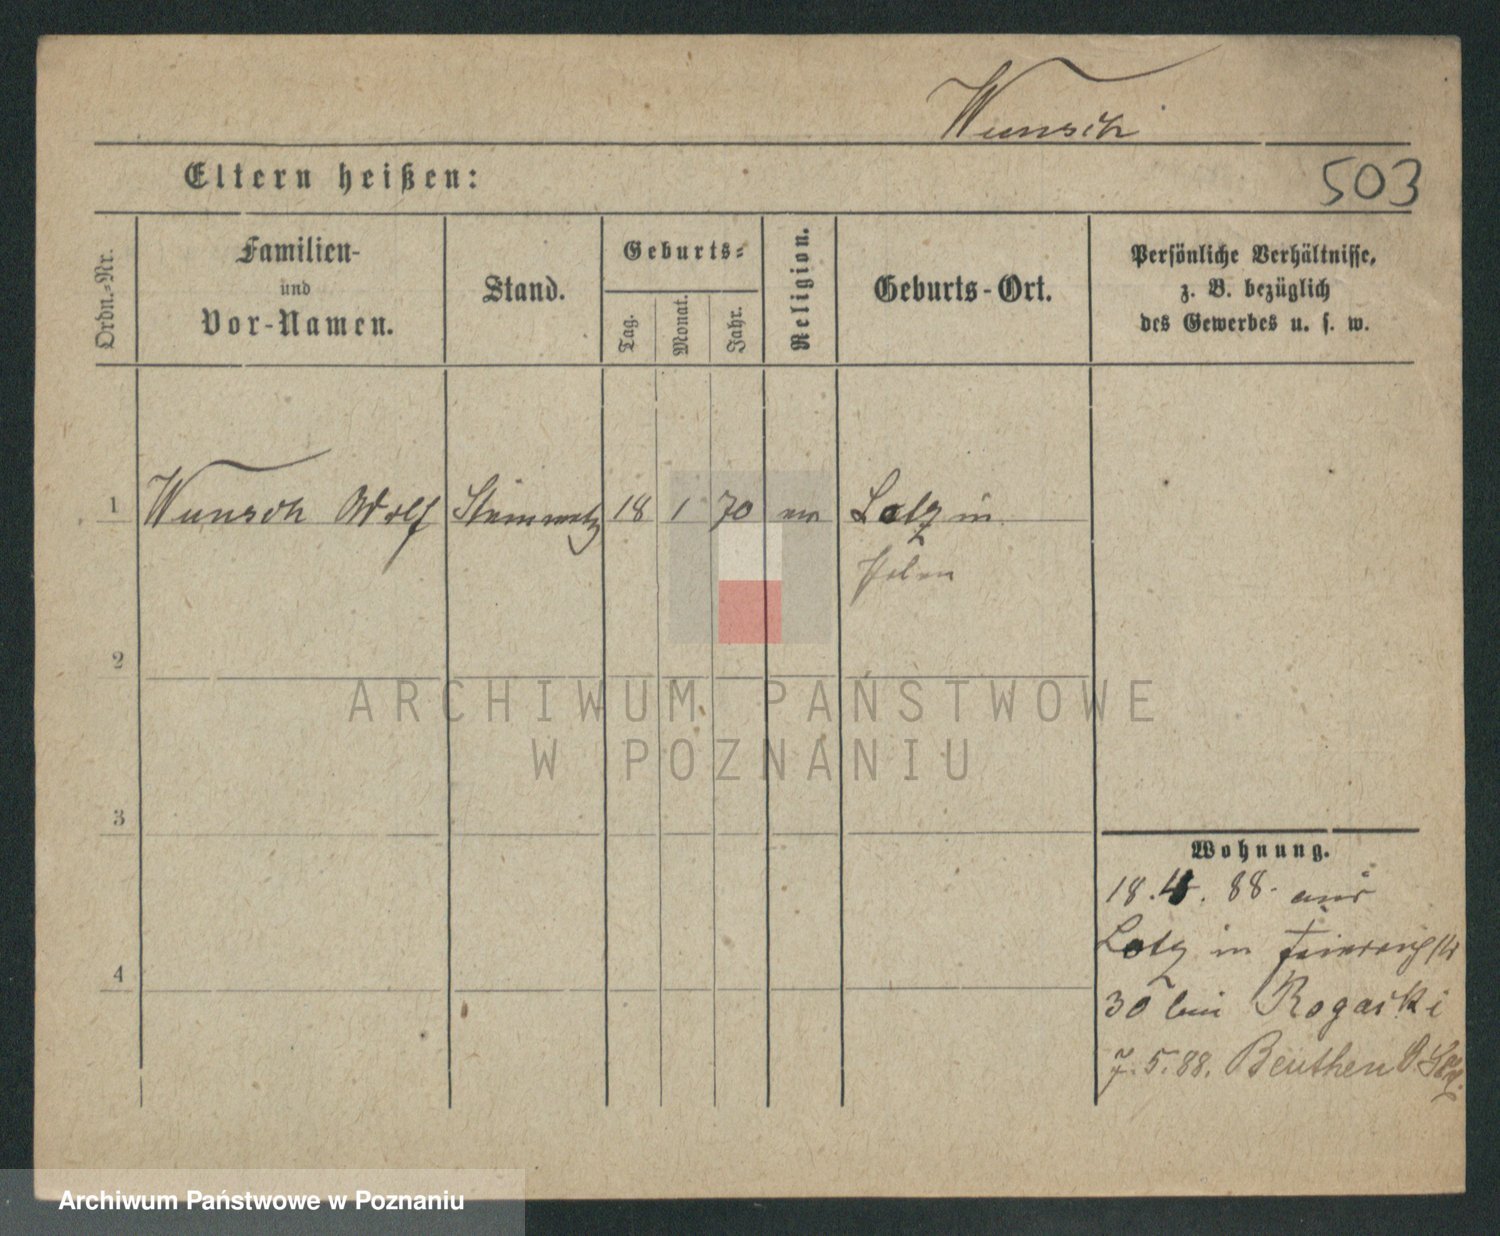 Wunsch
Eltern heißen:
503
Ordn.-Nr.
Familien-
und
Vor-Namen.
Stand.
Geburts-
Tag.
Monat.
Jahr.
Religion.
Geburts-Ort.
Persönliche Verhältnisse,
z. B. bezüglich
des Gewerbes u. s. w.
1 Wunsch Adolf Steinmetz 18 1 70 ev Lotz in
Polen
2
ARCHIWUM PAŃSTWOWE
W POZNANIU
3
Wohnung.
18.4.88. aus
Lotz in
4
30 bei Rogaski
7.5.88. Beuthen
Archiwum Państwowe w Poznaniu